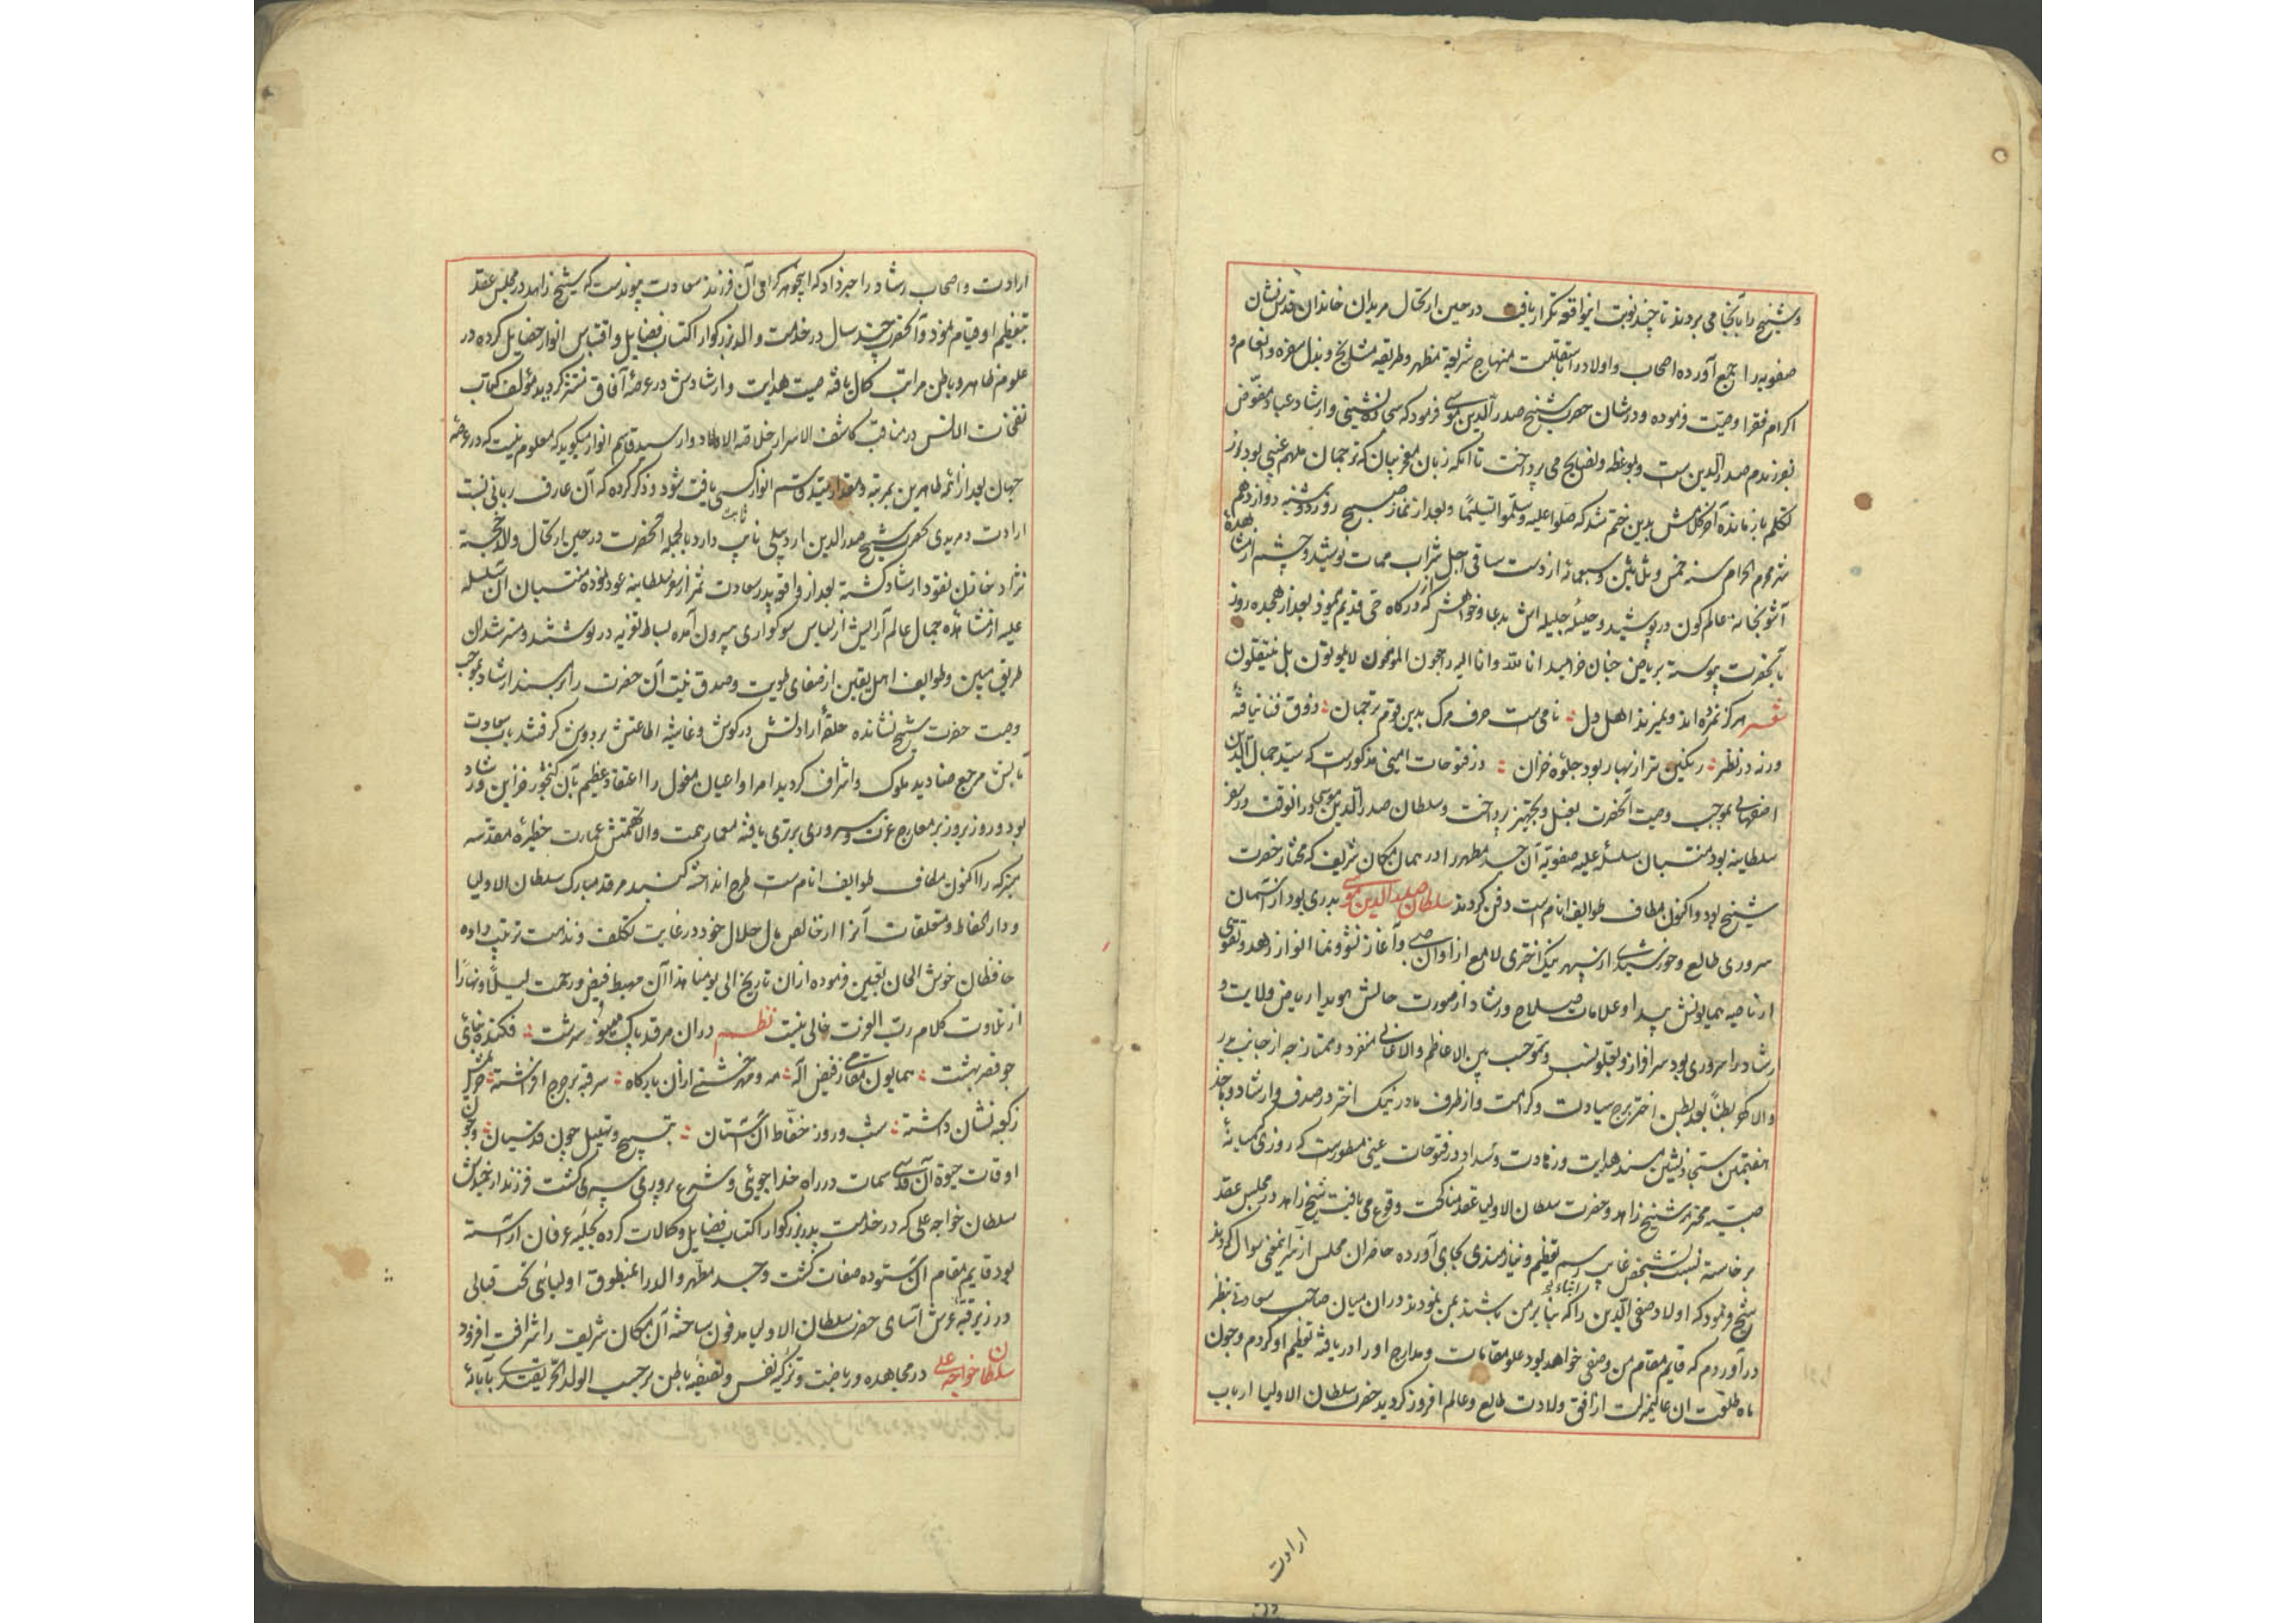 و شیخ را بآنجا می بردند تا چند نوبت اینواقعه تکرار یافت در حین ارتحال مریدان خاندان قدس نشان
صفویه را جمع آورده اصحاب و اولاد را باستقامت منهاج شریعة مطهر و طریقه مشایخ و بذل سفره و انعام و
اکرام فقرا وصیت فرموده و در شان حضرت شیخ صدر الدین موسی فرمود که سجاده نشینی و ارشاد عباد مفوض
بفرزندم صدر الدین ست و بوعظه و نصایح می پرداخت تا انکه زبان معجز بیان که ترجمان ملهم غیبی بود از
تکلم باز مانده آخر کلامش بدین ختم شد که صلوا علیه و سلموا تسلیمًا و بعد از نماز صبح روز دوشنبه دوازدهم
شهر محرم الحرام سنه خمس و ثلاثین و سبعمائه از دست ساقی اجل شراب ممات نوشید و چشم از مشاهدهٔ
آشوبخانه عالم کون در پوشید و حلیلهٔ جلیله اش بدعا و خواهش که از درگاه حی قدیم نمود بعد از هجده روز
بآنحضرت پیوسته بریاض جنان خرامید انا لله و انا الیه راجعون المؤمنون لا یموتون بل ینتقلون
شعر هرگز نمرده اند و نمیرند اهل دل : نامی ست حرف مرگ بدین قوم ترجمان : ذوق فنا نیافتهٔ
ورنه در نظر : رنگین تر از بهار بود جلوه خزان : در فتوحات امینی مذکورست که سید جمال الدین
اصفهانی بموجب وصیت آنحضرت بغسل و تجهیز پرداخت و سلطان صدر الدین موسی در انوقت در سفر
سلطانیه بود منتسبان سلسله علیه صفویه آن جسد مطهر را در همان مکان شریف که مختار حضرت
شیخ بود و اکنون مطاف طوایف انام است دفن کردند سلطان صدر الدین موسی بدری بود از آسمان
سروری طالع و خورشیدی از سپهر نیک اختری لامع از اوان صبی و آغاز نشو و نما انوار زهد و تقوی
از ناصیه همایونش پیدا و علامات صلاح و رشاد از صورت حالش هویدا ریاض ولایت و
رشاد را سروری بود سرافراز و بعلو نسب و سمو حسب بین الاعاظم و الاعالی منفرد و ممتاز چه از جانب پدر
والا گهر بطنًا بعد بطن اختر برج سیادت و کرامت و از طرف مادر نیک اختر در صدف وارشاد و بماخذ
هفتمین سجاده نشین مسند هدایت و زهادت و سداد در فتوحات عینی مسطورست که روزی که میانهٔ
صبیه محترمه شیخ زاهد و حضرت سلطان الاولیا عقد مناکحت وقوع می یافت شیخ زاهد در مجلس عقد
برخاسته نسبت بشخص غایب رسم تعظیم و نیازمندی بجای آورده حاضران مجلس از سر اینمعنی سوال کردند
شیخ فرمود که اولاد صفی الدین را که ابناء بنا بر من باشند بمن نمودند در ان میان صاحب سعادتی بنظر
در آوردم که قایم مقام من و صفی خواهد بود علو مقامات و مدارج او را دریافته تعظیم او کردم و چون
ماه طلعت ان عالیمنزلت از افق ولادت طالع و عالم افروز گردید حضرت سلطان الاولیا ارباب
ارادت
ارادت و اصحاب رشاد را خبر داد که اینجوهر گرامی آن فرزند سعادت پیوندست که شیخ زاهد در مجلس عقد
تبعظیم او قیام نمود و آنحضرت چند سال در خدمت والد بزرگوار اکتساب فضایل و اقتباس انوار خصایل کرده در
علوم ظاهر و باطن مراتب کمال یافته صیت هدایت و ارشادش در عرصهٔ آفاق منتشر گردید مؤلف کتاب
نفحات الانس در مناقب کاشف الاسرار خلاصه الاطهار وارسید قاسم انوار میگوید که معلوم نیست که در عرصهٔ
جهان بعد از ائمه طاهرین بمرتبه و مقدار سید قاسم انوار کسی یافت شود و ذکر کرده که آن عارف ربانی نسبت
ارادت و مریدی بحضرت شیخ صدر الدین اردبیلی ثابت دارد بالجمله آنحضرت در حین ارتحال والد خجسته
نژاد خازن نقود ارشاد گشته بعد از واقعه پدر سعادت ثمر از سفر سلطانیه عود نموده منتسبان ان سلسله
علیه از مشاهده جمال عالم آرایش از لباس سوگواری بیرون آمده بساط تعزیه در نوشتند و مسترشدان
طریق مبین و طوایف اهل یقین از صفای طویت و صدق نیت آن حضرت را بر مسند ارشاد بموجب
وصیت حضرت شیخ نشانده حلقهٔ ارادتش در گوش و غاشیه اطاعتش بر دوش گرفتند باب سعادت
مآبش مرجع صنادید ملوک و اشراف گردید امرا و اعیان مغول را اعتقاد عظیم بآن گنجور خزاین رشاد
بود و روز بروز بر معارج عزت و سروری برتری یافته معمار همت والا نهمتش عمارت حظیرهٔ مقدسه
متبرکه را اکنون مطاف طوایف انام ست طرح انداخته گنبد مرقد مبارک سلطان الاولیا
و دار الحفاظ و متعلقات آنرا از خالص مال حلال خود در غایت تکلف و ندامت ترتیب داده
حافظان خوش الحان تعیین فرموده از ان تاریخ الی یومنا هذا آن مهبط فیض و رحمت لیلًا و نهارًا
از تلاوت کلام رب العزت خالی نیست نظم در ان مرقد پاک مینو سرشت : فکنده بنائی
چو قصر بهشت : همایون مقامی ز فیض آله : مه و مهر خشتی از ان بارگاه : سر قبه بر چرخ افراشته : حریمش
ز کعبه نشان داشته : شب و روز حفاظ ان آستان : بتسبیح و تهلیل چون قدسیان : و چون
اوقات حیوة آن قدسی سمات در راه خدا جویی و شرع پروری سپری گشت فرزند ارجمندش
سلطان خواجه علی که در خدمت پدر بزرگوار اکتساب فضایل و کمالات کرده بحلیه عرفان آراسته
بود قایم مقام ان ستوده صفات گشت و جسد مطهر والد را بمنطوق اولیائی تحت قبالی
در زیر قبهٔ عرش آسای حضرت سلطان الاولیا مدفون ساخته آن مکان شریف را شرافت افزود
سلطان خواجه علی در مجاهده و ریاضت و تزکیه نفس و تصفیه باطن بر حسب الولد الحر یقتدی بآبائهٔ